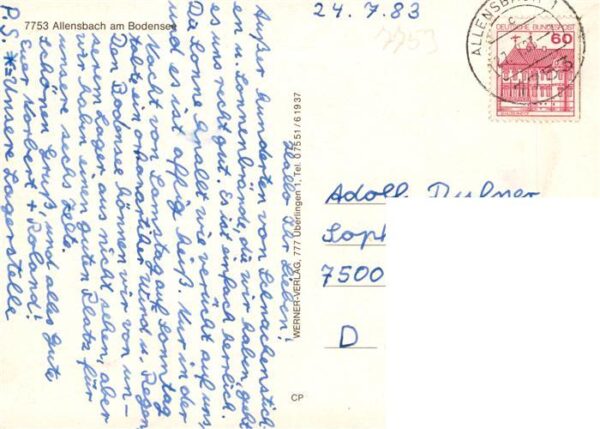 7753 Allensbach am Bodensee
24.7.83
7753
ALLENSBACH 1
DEUTSCHE BUNDESPOST
60
Hallo Ihr Lieben,
Außer hunderten von Schnackenstich
en u. Sonnenbrände, die wir haben, geht
es uns recht gut. Es ist einfach herlich.
Die Sonne knallt wie verückt auf uns,
und es ist affig heiß. Nur in der
Nacht von Samstag auf Sonntag
tobte ein orkanartiger Wind u. Regen
Den Bodensee können wir von un-
serem Lager aus nicht sehen, aber
wir haben einen guten Platz für
unsere sechs Zelte.
Schönen Gruß, und alles Gute
Euer Norbert + Roland!
P.S. x = Unsere Lagerstelle
WERNER-VERLAG, 777 Überlingen 1, Tel. 07551/61937
CP
Adolf
7500
D